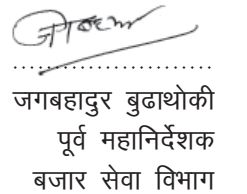 जगबहादुर बुढाथोकी
पूर्व महानिर्देशक
बजार सेवा विभाग